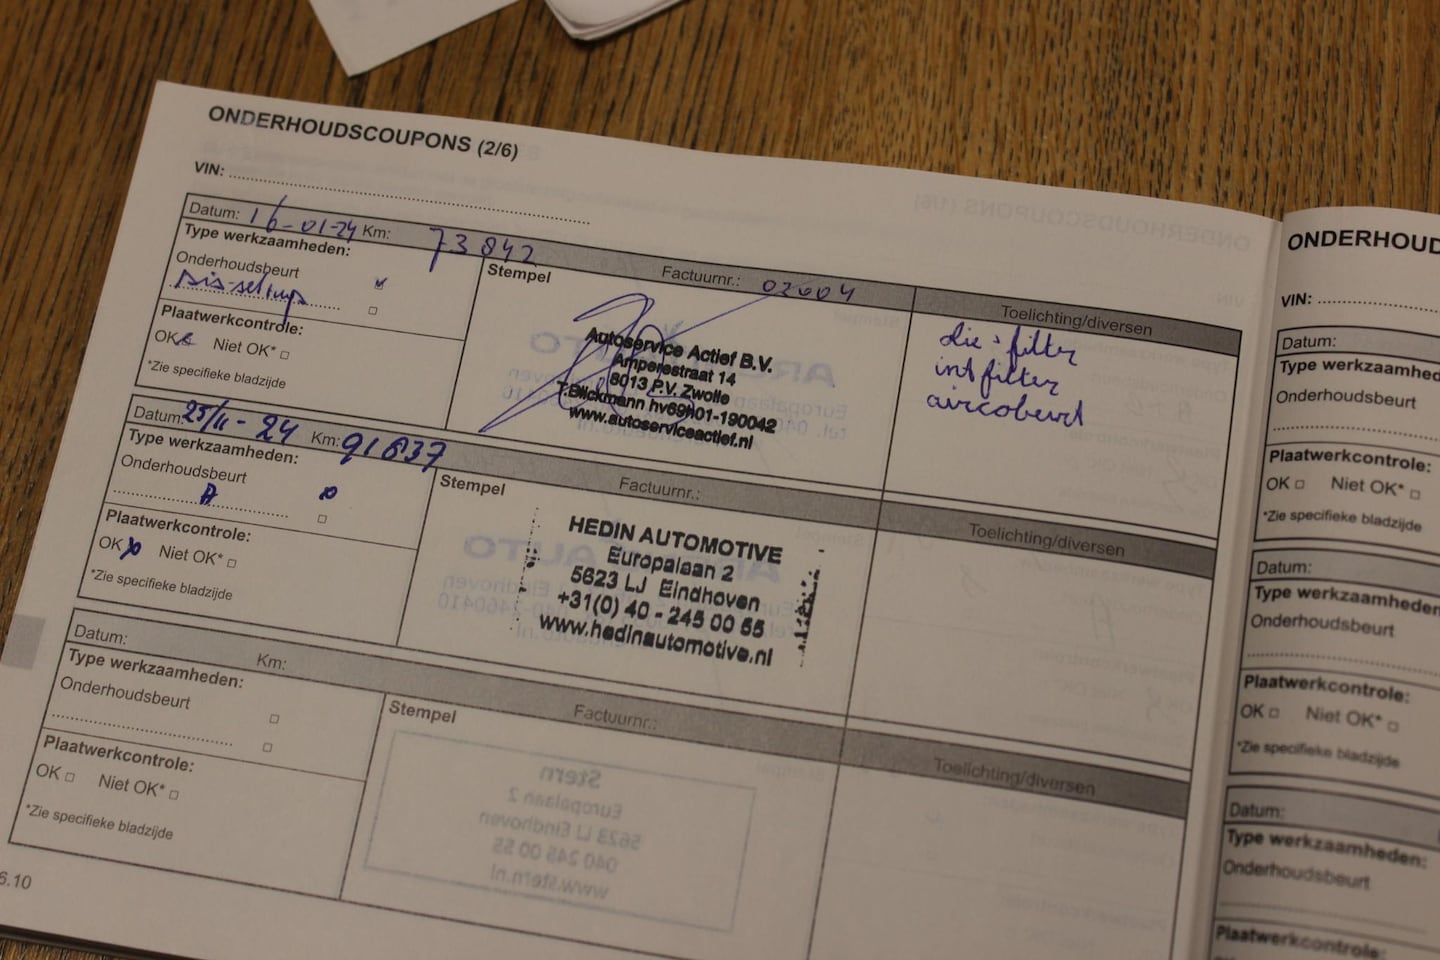 ONDERHOUDSCOUPONS (2/6)
VIN:
Datum: 16-01-24 Km: 73842
Type werkzaamheden:
Onderhoudsbeurt
Plaatwerkcontrole:
OK Niet OK* □
*Zie specifieke bladzijde
Stempel
Factuurnr.: 02004
Autoservice Actief B.V.
Amperestraat 14
8013 P.V. Zwolle
T.Blickmann hv69h01-190042
www.autoserviceactief.nl
Toelichting/diversen
int filter
aircobeurt
Datum: 25/11-24 Km: 91637
Type werkzaamheden:
Onderhoudsbeurt
A
Plaatwerkcontrole:
OK Niet OK* □
*Zie specifieke bladzijde
Stempel
Factuurnr.:
HEDIN AUTOMOTIVE
Europalaan 2
5623 LJ Eindhoven
+31(0) 40 - 245 00 55
www.hedinautomotive.nl
Toelichting/diversen
Datum: Km:
Type werkzaamheden:
Onderhoudsbeurt □
Plaatwerkcontrole:
OK □ Niet OK* □
*Zie specifieke bladzijde
Stempel
Factuurnr.:
Stern
Europalaan 2
5623 LJ Eindhoven
040 245 00 55
www.stern.nl
Toelichting/diversen
6.10
ONDERHOUD
VIN:
Datum:
Type werkzaamhed
Onderhoudsbeurt
Plaatwerkcontrole:
OK □ Niet OK* □
*Zie specifieke bladzijde
Datum:
Type werkzaamheden
Onderhoudsbeurt
Plaatwerkcontrole:
OK □ Niet OK* □
*Zie specifieke bladzijde
Datum:
Type werkzaamheden:
Onderhoudsbeurt
Plaatwerkcontrole: